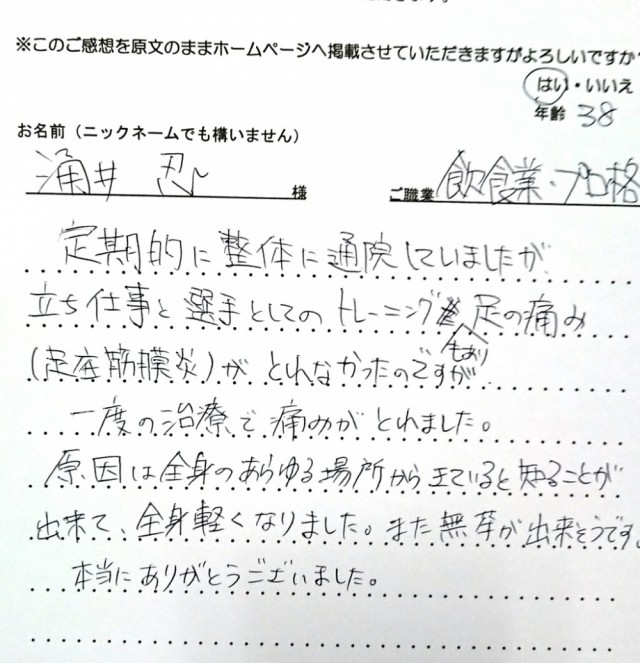 ※このご感想を原文のままホームページへ掲載させていただきますがよろしいですか
はい・いいえ
年齢 38
お名前（ニックネームでも構いません）
涌井 忍 様 ご職業 飲食業・プロ格
定期的に整体に通院していましたが
立ち仕事と選手としてのトレーニング もあり 足の痛み
(足底筋膜炎)がとれなかったのですが
一度の治療で痛みがとれました。
原因は全身のあらゆる場所から 来ていると知ることが
出来て、全身軽くなりました。また無茶が出来そうです。
本当にありがとうございいました。